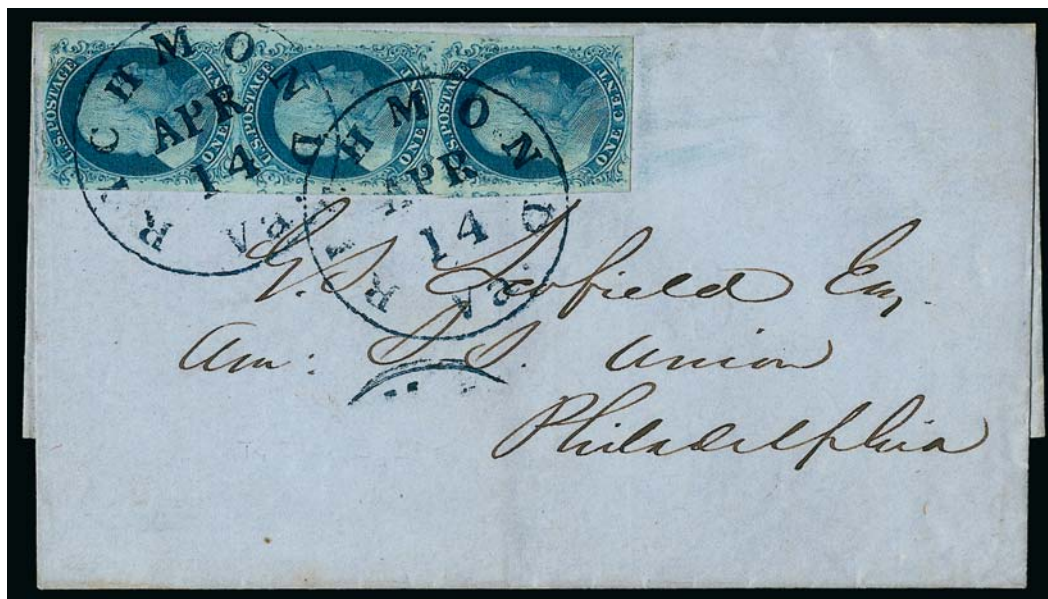 U.S. POSTAGE ONE CENT
U.S. POSTAGE ONE CENT
U.S. POSTAGE ONE CENT
RICHMOND Va.
APR
14
RICHMOND Va.
APR
14
G. S. Scofield Esq.
Am: S. S. Union
Philadelphia